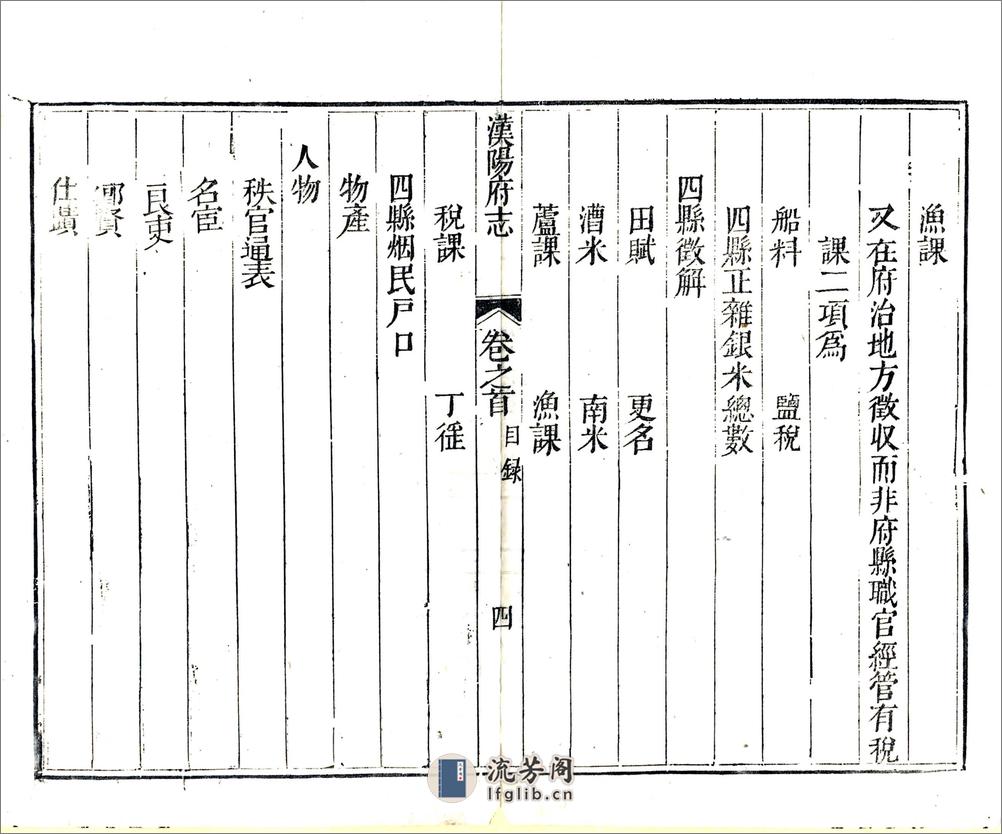 漁課
又在府治地方徵収而非府縣職官經管有稅
課二項爲
船料 鹽稅
四縣正雜銀米總數
四縣徵解
田賦 更名
漕米 南米
蘆課 漁課
漢陽府志 卷之首 目録 四
稅課 丁徭
四縣烟民戸口
物產
人物
秩官通表
名宦
良吏
鄉賢
仕蹟
流芳阁
lfglib.cn